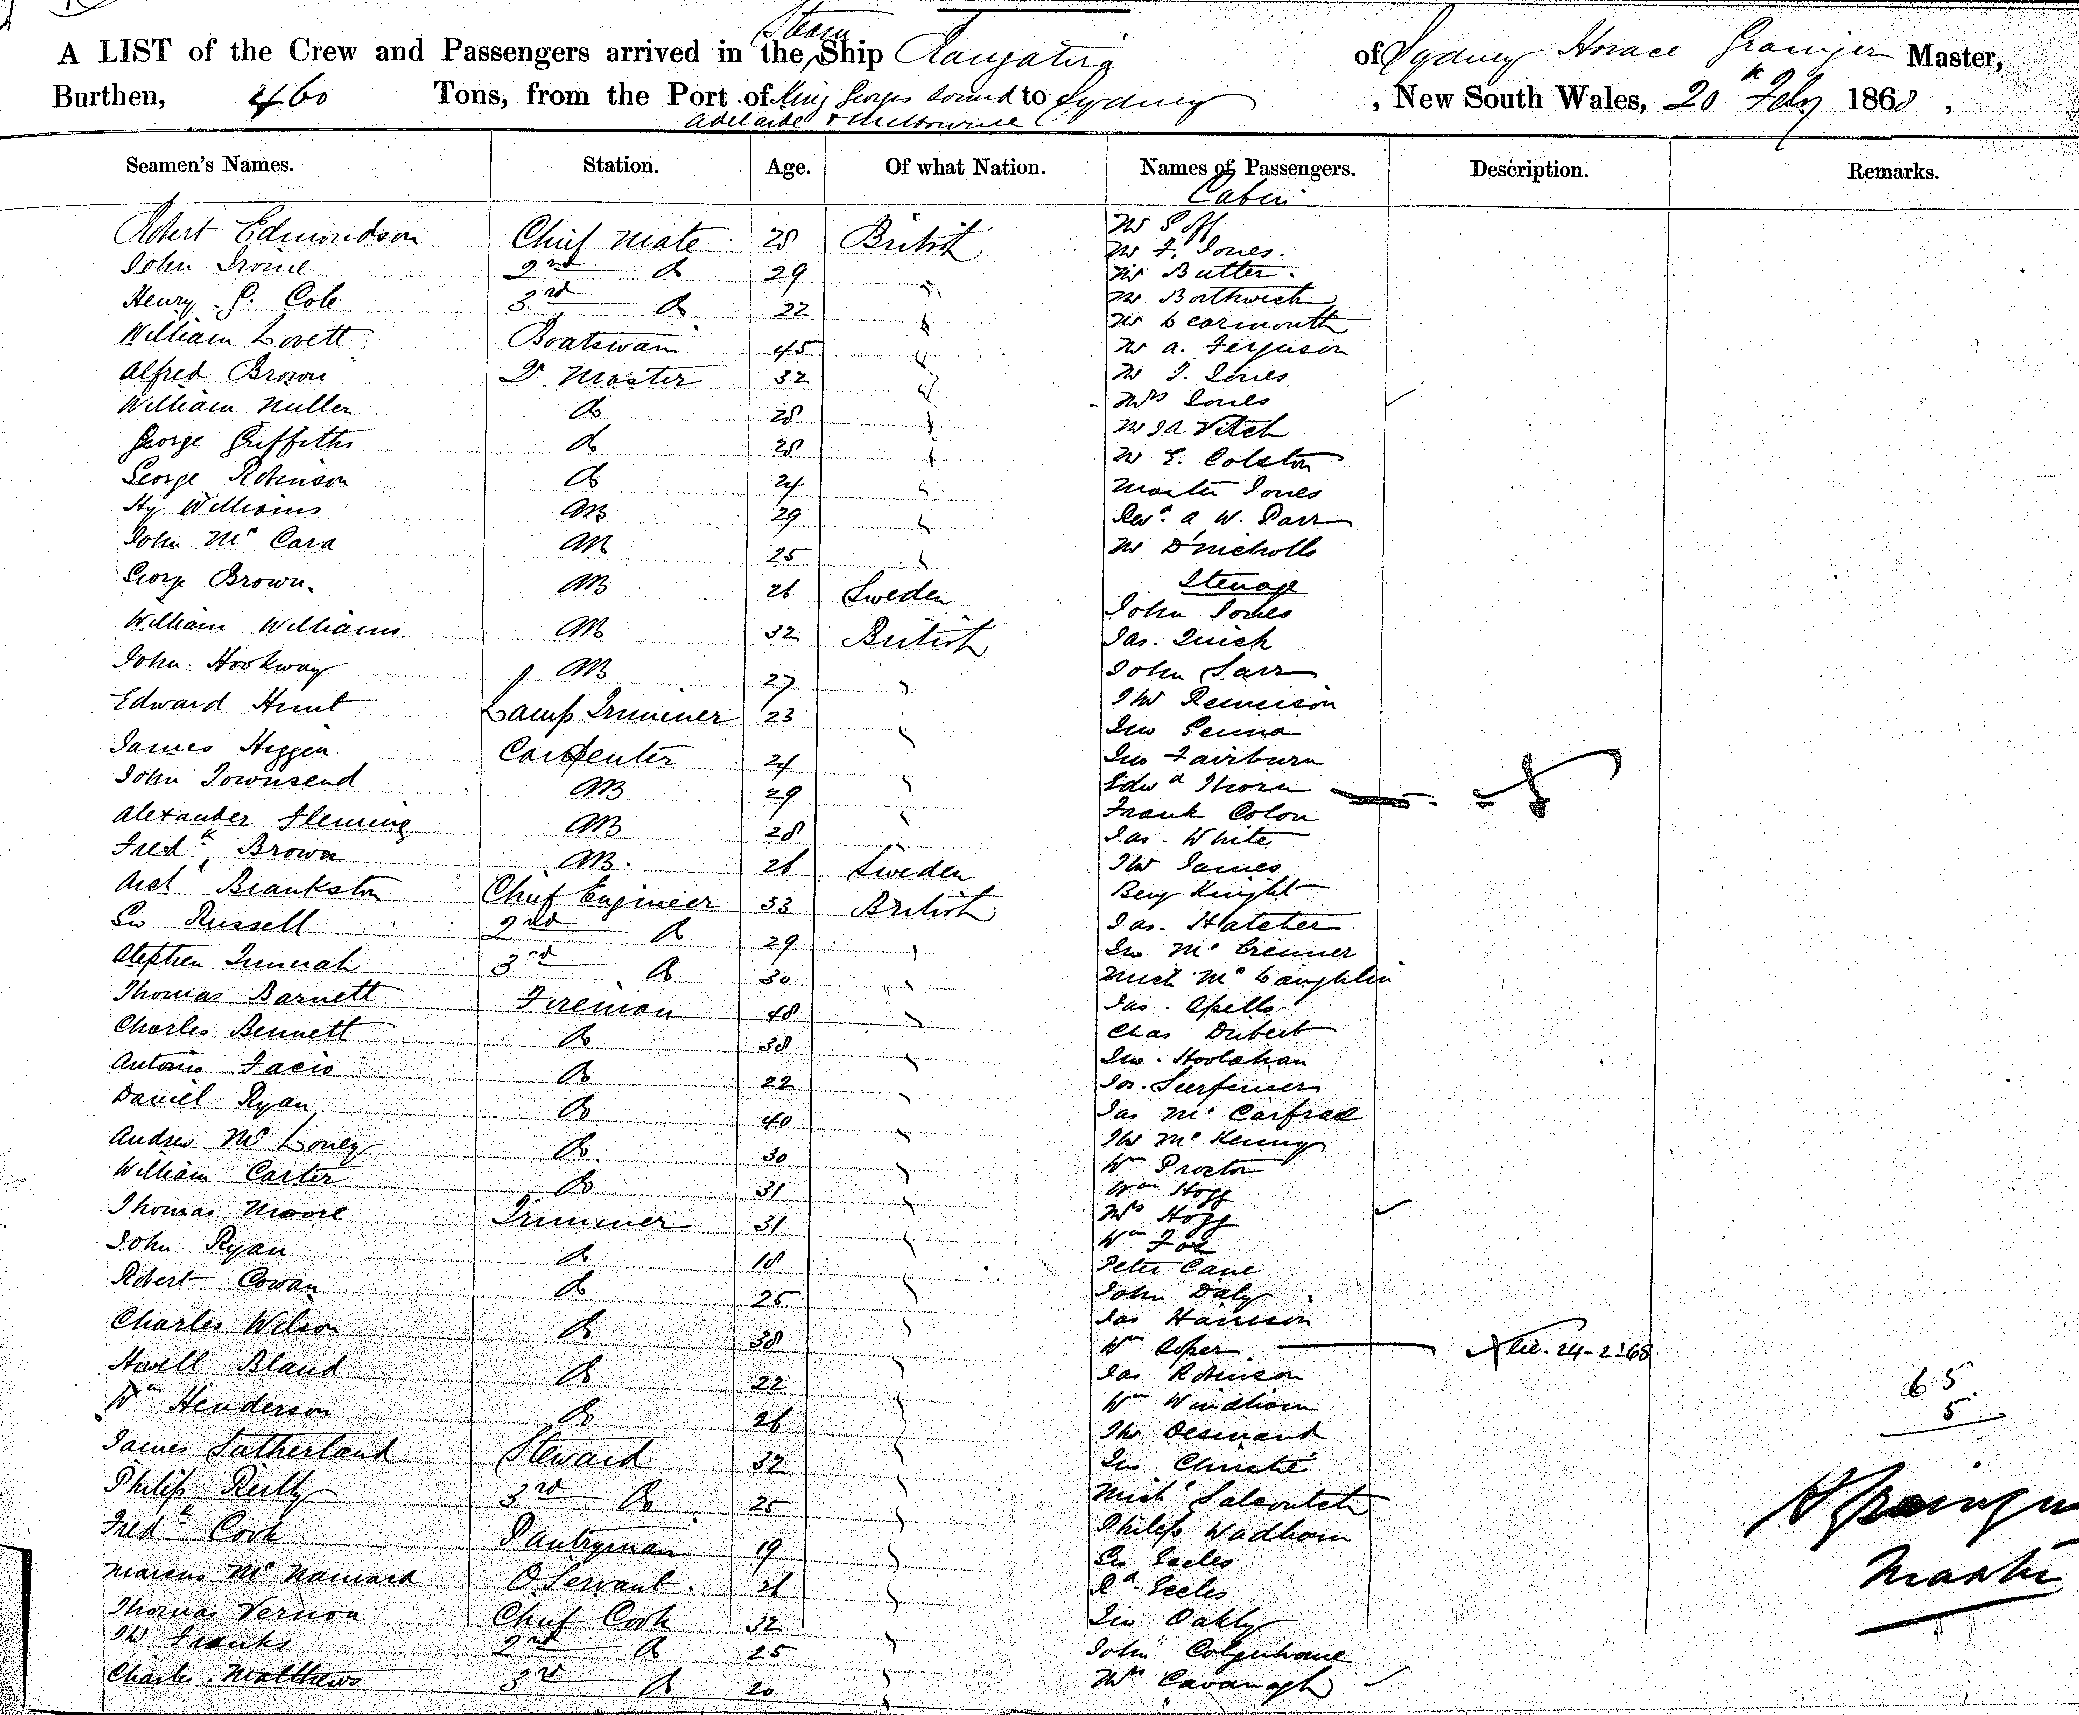 A LIST of the Crew and Passengers arrived in the Steam Ship Rangatira of Sydney Horace Grainger Master,
Burthen, 460 Tons, from the Port of King Georges Sound to Sydney, New South Wales, 20th Feby 1868,
Adelaide & Melbourne
Seamen's Names. Station. Age. Of what Nation. Names of Passengers. Description. Remarks.
Cabin
Robert Edmondson Chief Mate 28 British Mr
Mr F. Jones
John 2nd Do 29 Mr Butler
Henry Cole 3rd Do 22 Mr Borthwick
Mr Learmouth
William Lovett Boatswain 45 Mr A. Ferguson
Alfred Brown Qr Master 32 Mr J. Jones
William Do 28 Mrs Jones
George Griffiths Do 28 Mr Veitch
Mr E. Colston
George Robinson Do 24 Master Jones
Hy Williams AB 29 Revd A W. Parr
John McCara AB 25 Mr D Nicholls
George Brown AB 26 Sweden Steerage
John Jones
William Williams AB 32 British Jas. Quick
John Hookway AB 27 John
Edward Hunt Lamp Trimmer 23 Thos
Jno
James Carpenter 24 Jno Fairburn
John Townsend AB 29 Edwd Thorn
Alexander Fleming AB 28 Frank Colon
Jas. White
Fredk Brown AB. 26 Sweden Thos James
Arcd Brankston Chief Engineer 33 British Benj Knight
Geo Russell 2nd Do 29 Jas. Hatcher
Jno Mc
Stephen 3rd Do 30 Mich McLaughlin
Thomas Barnett Fireman 48 Jas.
Charles Bennett Do 38 Chas
Jno. Hoolahan
Antonio Do 22 Jas.
Daniel Ryan Do 40 Jas Mc
Andrew McLoney Do 30 Thos McKenny
William Carter Do 31 Wm Proctor
Wm Hogg
Thomas Moore Trimmer 31 Mrs Hogg
Wm Fox
John Ryan Do 18 Peter Cane
Robert Cowan Do 25 John Daly
Charles Wilson Do 38 Jas Harrison
Wm 24-2-68
Howell Bland Do 22 Jas Robinson
Wm Henderson Do 26 Wm Windham
Thos
James Sutherland Steward 32 Jno Christie
65
5
Philip Reilly 3rd Do 25 Michl
Fredk Cook Pantryman 19 Philip Wadham
Geo Eccles
H Grainger
Marcus McNamara O. Servant 21 Rd Eccles
Master
Thomas Vernon Chief Cook 32 Jno Oakly
Thos Franks 2nd Do 25 John Colquhoune
Charles Matthews 3rd Do 20 Mrs Cavanagh